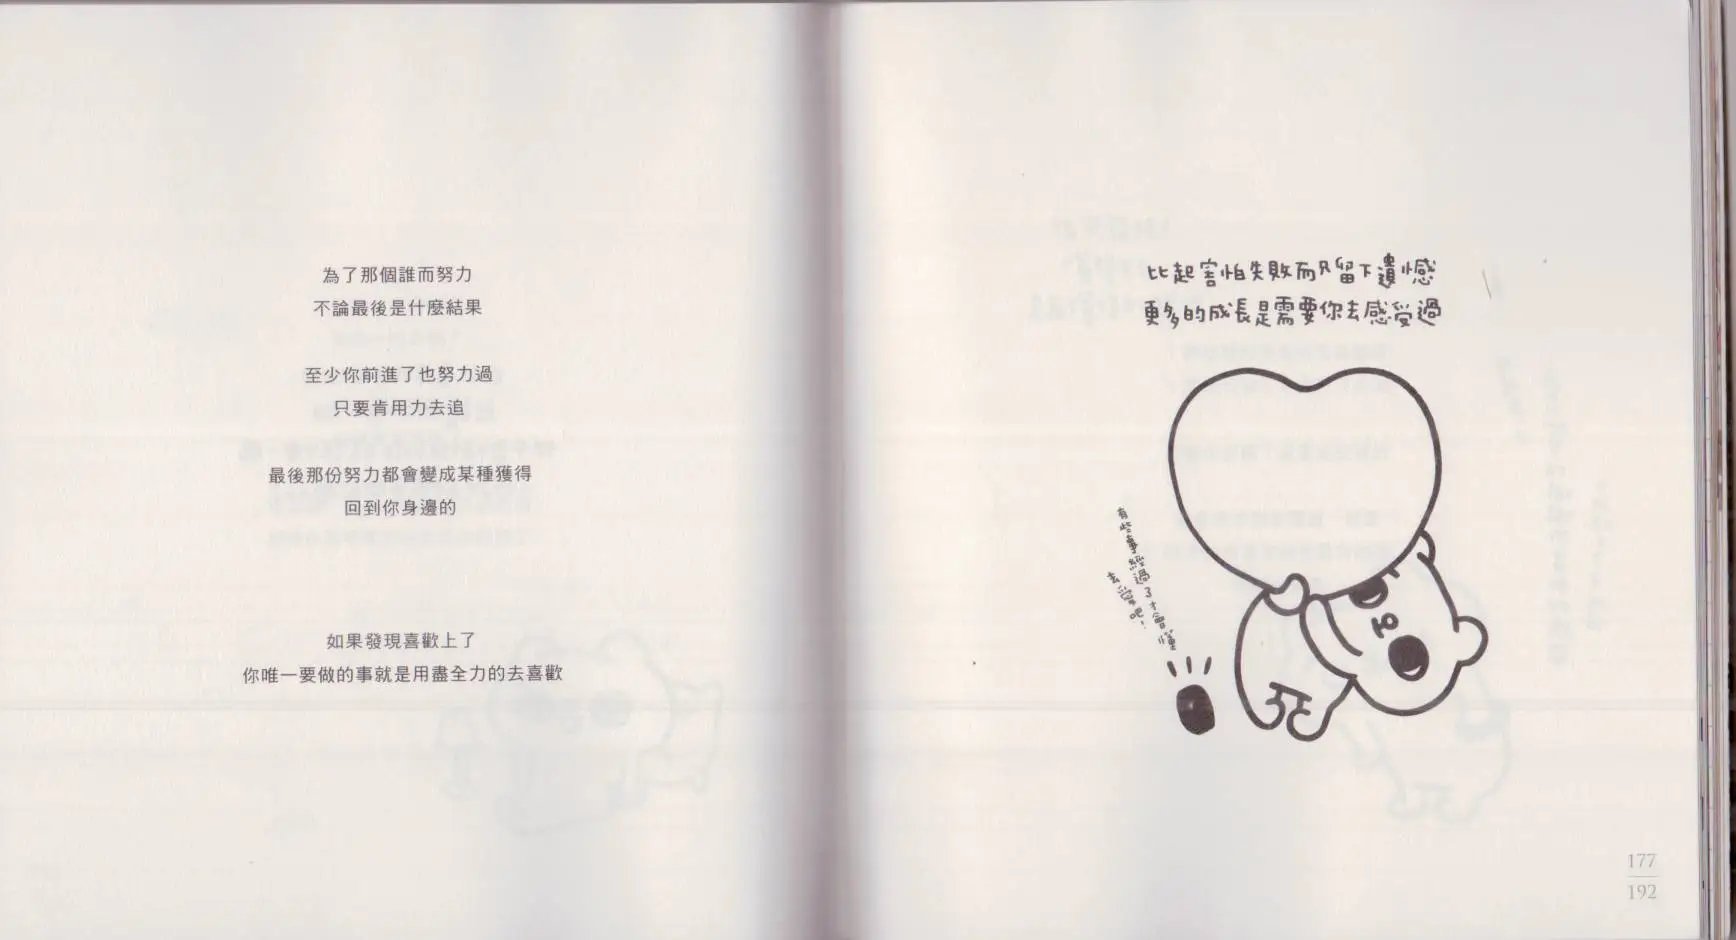 為了那個誰而努力
不論最後是什麼結果
至少你前進了也努力過
只要肯用力去追
最後那份努力都會變成某種獲得
回到你身邊的
如果發現喜歡上了
你唯一要做的事就是用盡全力的去喜歡
比起害怕失敗而只留下遺憾
更多的成長是需要你去感受過
有些事經過了才會懂
去愛吧!
177
192